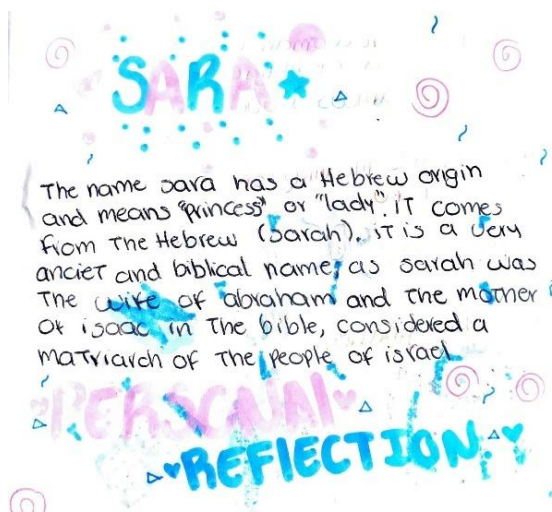 SARA
The name sara has a Hebrew origin
and means "princess" or "lady". iT comes
from The Hebrew (sarah). iT is a very
ancieT and biblical name, as sarah was
The wife of abraham and The mother
of isaac in The bible, considered a
maTriarch of The people of israel
PERSONAl
REFlECTION.